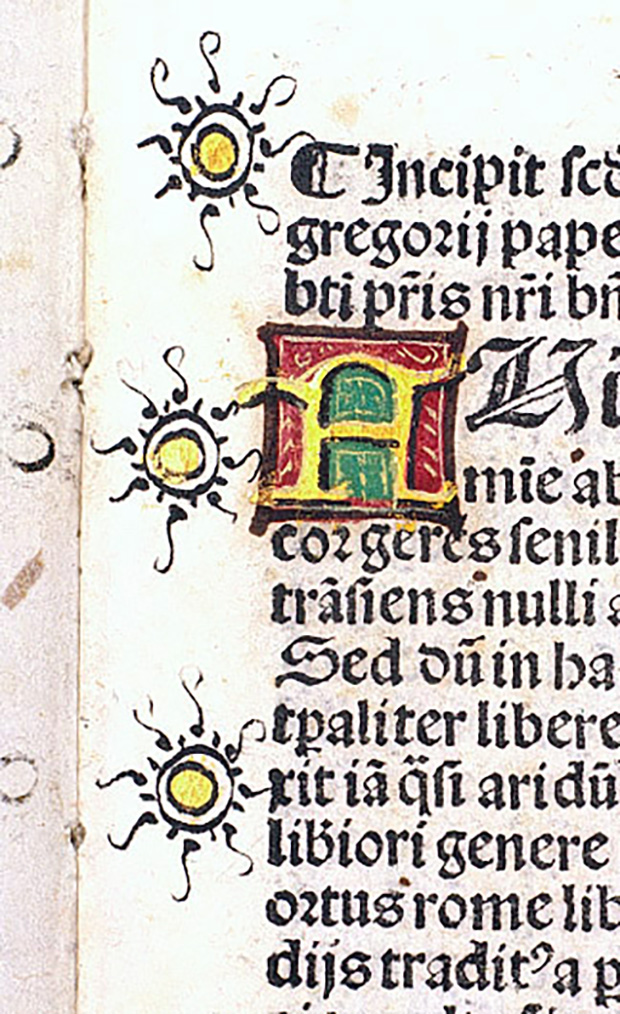 ¶ Incipit scd
gregorij pape
bti pr̄is nr̄i bn̄
F Ui
mīe ab
cor gerēs senil
trāsiens nulli a
Sed dū in ha
tpaliter libere
xit iā q̄si aridū
libiori genere
ortus rome lib
dijs traditꝰ a p